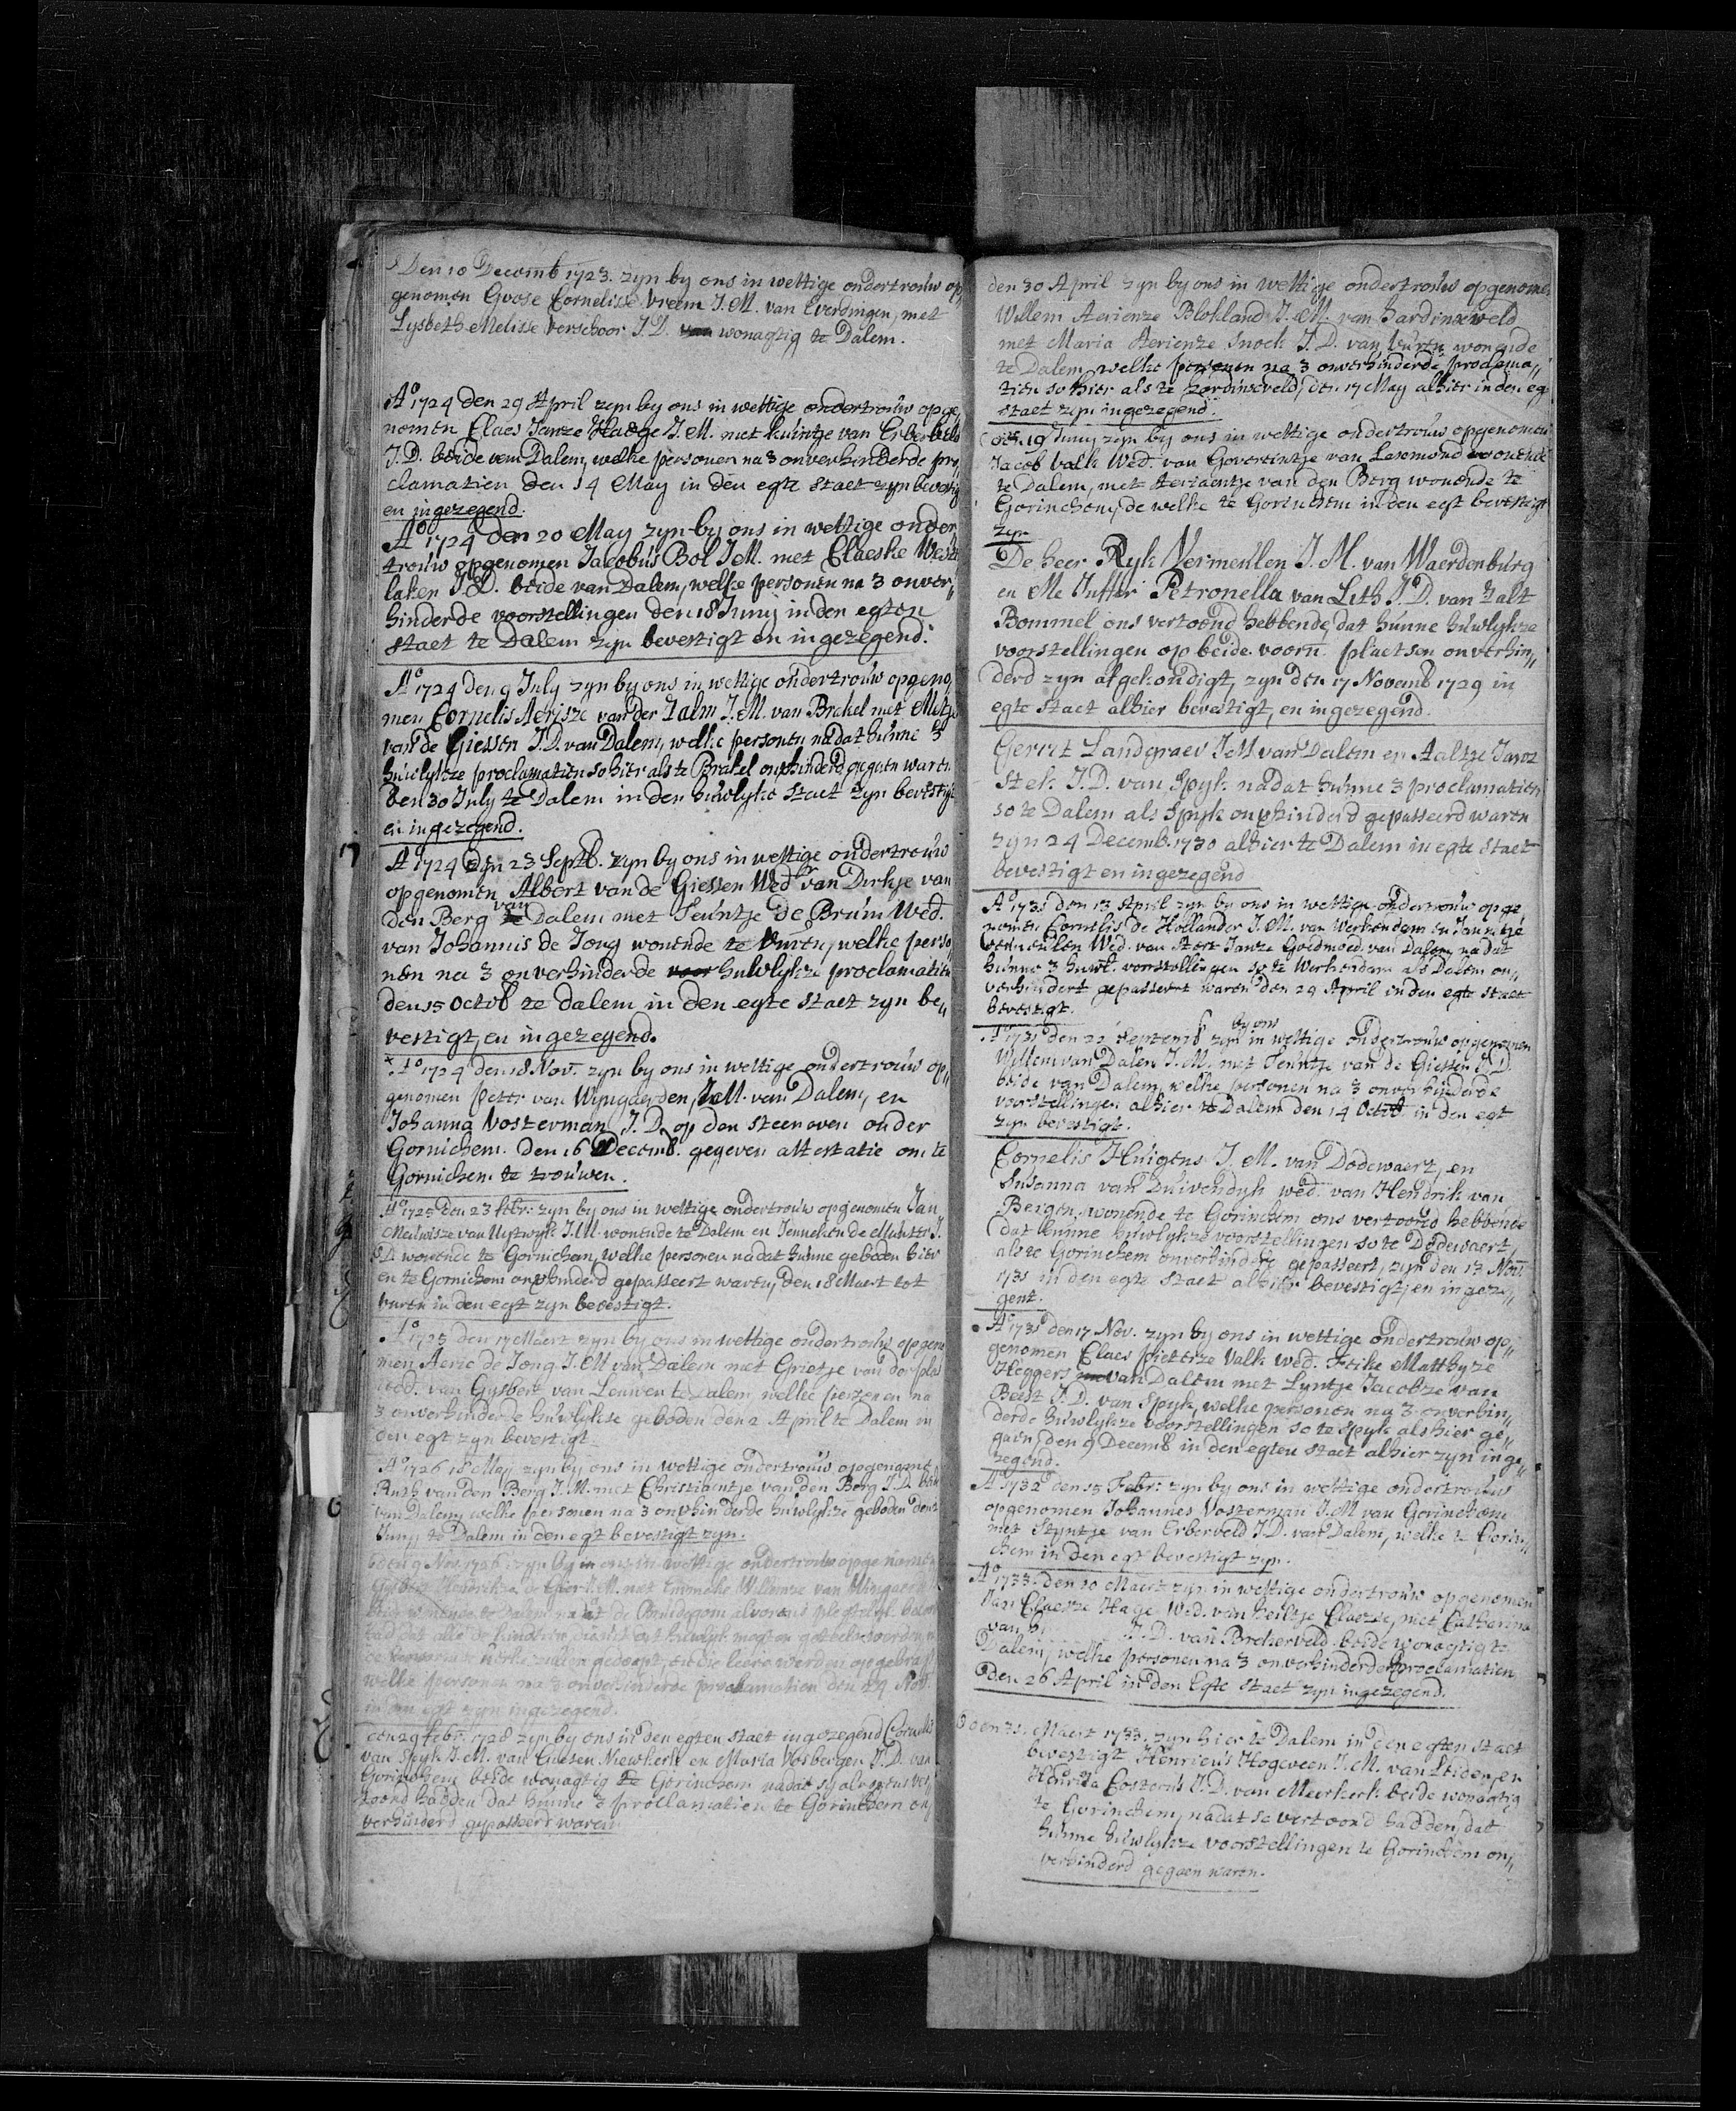 Den 10 Decemb 1723. zyn by ons in wettige ondertrouw op„
genomen Goose Cornelisse Vreem J.M. van Everdingen, met
Lysbeth Melisse Verschoor J.D. van wonagtig te Dalem.
A° 1724 den 29 April zyn by ons in wettige ondertrouw opge„
nomen Claes Janze Haege J.M. met van Erberveld
J.D. beide van Dalem, welke personen na 3 onverhinderde pro„
clamatien den 14 May in den egte staet zyn bevestig
en ingezegend.
A° 1724 den 20 May zyn by ons in wettige onder
trouw opgenomen Jacobus Bol J.M. met Claeske West
laken J.D. beide van Dalem, welke personen na 3 onver„
hinderde voorstellingen den 18 Junij in den egten
staet te Dalem zyn bevestigt en ingezegend.
A° 1724 den 9 July zyn by ons in wettige ondertrouw opgeno„
men Cornelis Aerisze van der Zalm J.M. van Brakel met Metje
van de Giessen J.D. van Dalem, welke personen nadat hunne 3
huwlykze proclamatien so hier als te Brakel onverhinderd gegaen waren
den 30 July te Dalem in den huwlyke staet zyn bevestigt
en ingezegend.
A° 1724 den 23 Septb. zyn by ons in wettige ondertrouw
opgenomen Albert van de Giessen Wed van Dirkje van
den Berg te van Dalem met Teuntje de Bruin Wed.
van Johannis de Jong wonende te Vuren, welke perso„
nen na 3 onverhinderde voor huwlykze proclamatien
den 15 Octob te Dalem in den egte staet zyn be„
vestigt, en ingezegend.
A° 1724 den 18 Nov. zyn by ons in wettige ondertrouw op„
genomen Peter van Wyngaerden, J.M. van Dalem, en
Johanna Vosterman J.D. op den steenoven onder
Gornichem. Den 16 Decemb. gegeven attestatie om te
Gornichem te trouwen.
A° 1725 den 23 febr: zyn by ons in wettige ondertrouw opgenomen Jan
Meuwisze van Uytwyk J.M. wonende te Dalem en Jenneken de Munter J.
D. wonende te Gornichem, welke personen nadat hunne geboden hier
en te Gornichem onverhinderd gepasseert waren, den 18 Maert tot
Vuren in den egt zyn bevestigt.
A° 1725 den 17 Maert zyn by ons in wettige ondertrouw opgeno
men Aerie de Jong J.M van Dalem met Grietje van der plas
wed. van Gysbert van Leuwen te Dalem, welke personen na
3 onverhinderde huwlykse geboden den 2 April te Dalem in
den egt zyn bevestigt.
A° 1726 18 May zyn by ons in wettige ondertrouw opgenome
Ruth van den Berg J.M. met Christiaentje van den Berg J.D. beide
van Dalem, welke personen na 3 onverhinderde huwlykze geboden den 2
Junij te Dalem in den egt bevestigt zyn.
den 9 Nov. 1726 zyn by ons in wettige ondertrouw opgenomen
Gysbert Hendrikze J.M. met Willemze van Wingaerden
beide wonende te Dalem nadat de Bruidegom alvorens
had dat alle de kinderen
kerke zullen gedoopt, en die leere werden opgebragt
welke personen na 3 onverhinderde proclamatien den 24 Nov.
in den egt zyn ingezegend.
den 29 febr. 1728 zyn by ons in den egten staet ingezegend Cornelis
van Spyk J.M. van Giesen Niewkerk en Maria Vosbergen J.D. van
Gorinchem beide wonagtig te Gorinchem nadat sy alvorens ver„
toond hadden dat hunne 3 proclamatien te Gorinchem on„
verhinderd gepasseerd waren
den 30 April zyn by ons in wettige ondertrouw opgenomen
Willem Aerienze Blokland J.M. van hardinxweld
met Maria Aerienze Snoek J.D. van Vuren wonende
te Dalem welke personen na 3 onverhinderde proclama„
tien so hier als te hardinxveld, den 17 May alhier in den eg„
staet zyn ingezegend.
den 19 Junij zyn by ons in wettige ondertrouw opgenomen
Jacob Valk Wed. van Govertintje van Leromond wonende
te Dalem, met Aeriaentje van den Berg wonende te
Gorinchem, de welke te Gorinchem in den egt bevestigt
zyn
De heer Ryk Vermeulen J.M. van Waerdenburg
en Me Juffer Petronella van Lith J.D. van Zalt
Bommel ons vertoond hebbende, dat hunne huwlykze
voorstellingen op beide voorn. plaetsen onverhin„
derd zyn afgekondigt, zyn den 17 Novemb 1729 in
egte staet alhier bevestigt, en ingezegend.
Gerrit Landgraev J.M van Dalem en Aaltje Janz
Stek J.D. van Spyk nadat hunne 3 proclamatien
so te Dalem als Spyk onverhinderd gepasseerd waren
zyn 24 Decemb. 1730 alhier te Dalem in egte staet
bevestigt en ingezegend
A° 1731 den 13 April zyn by ons in wettige ondertrouw opge„
nomen Cornelis de Hollander J.M. van Werkendam en Jannitje
Vermeulen Wed. van Aert Janze Goedmoed van Dalem, nadat
hunne 3 huwl. voorstellingen so te Werkendam als Dalem on„
verhindert gepasseert waren den 29 April in den egte staet
bevestigt.
A° 1731 den 22 Septemb zyn by ons in wettige ondertrouw opgenomen
Willem van Dalen J.M. met Teuntje van de Giessen J.D.
beide van Dalem, welke personen na 3 onverhinderde
voorstellingen alhier te Dalem den 14 Octob in den egt
zyn bevestigt.
Cornelis Huigens J.M. van Dodewaert, en
Susanna van Duivendyk wed. van Hendrik van
Bergen, wonende te Gorinchem ons vertoond hebbende
dat hunne huwlykze voorstellingen so te Dodewaert,
als te Gorinchem onverhinderd gepasseert, zyn den 13 Nov.
1731 in den egte staet alhier bevestigt, en ingeze„
gent.
A° 1731 den 17 Nov. zyn by ons in wettige ondertrouw op„
genomen Claes Pieterze Valk wed. Feike Matthyze
Heggers van Dalem met Lyntje Jacobze van
Beest J.D. van Spyk, welke personen na 3 onverhin„
derde huwlykze voorstellingen so te Spyk als hier ge„
gaen, den 9 Decemb in den egten staet alhier zyn inge„
zegend.
A° 1732 den 15 Febr: zyn by ons in wettige ondertrouw
opgenomen Johannes Vosterman J.M van Gorinchem
met Styntje van Erberveld J.D. van Dalem, welke te Gorin„
chem in den egt bevestigt zyn.
A° 1733. den 20 Maert zyn in wettige ondertrouw opgenomen
Jan Claerze Hage Wed. van heiltje Claezse, met Catharina
van J.D. van Breherveld. beide wonagtig te
Dalem, welke personen na 3 onverhinderde proclamatien
den 26 April in den Egte staet zyn ingezegend.
den 31. Maert 1733. zyn hier te Dalem in den egten staet
bevestigt Henricus Hogeveen J.M. van Leiden, en
Henrica Costerus J.D. van Meerkerk beide wonagtig
te Gorinchem, nadat se vertoond hadden, dat
hunne huwlykze voorstellingen te Gorinchem on„
verhinderd gegaen waren.